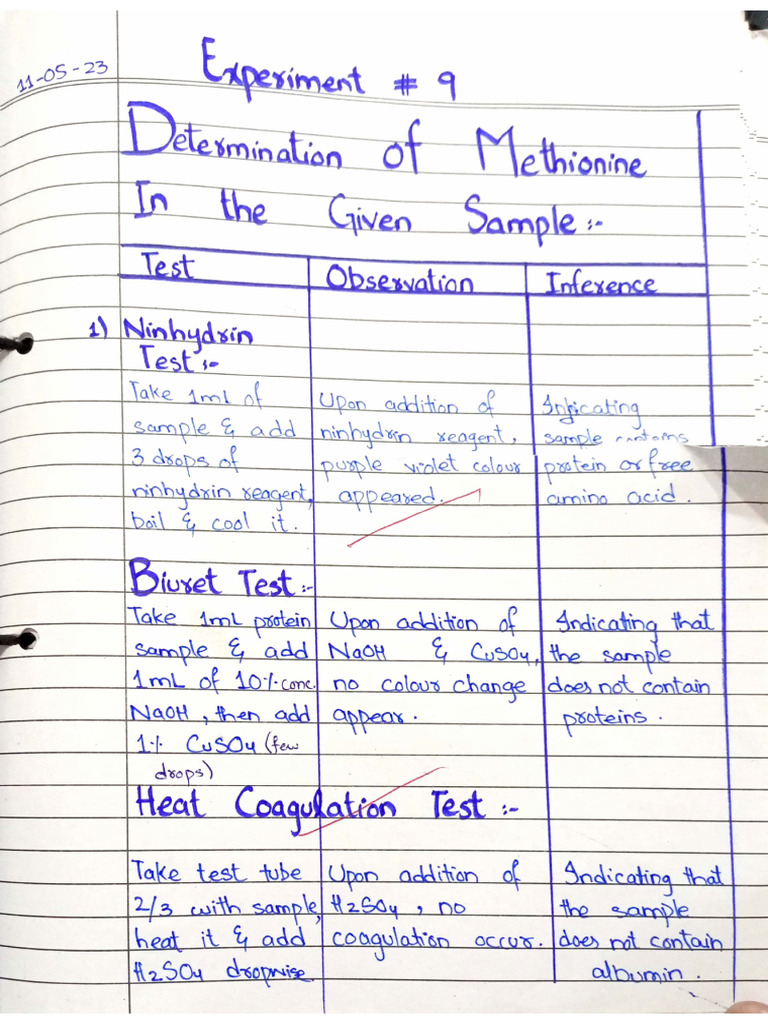 11-05-23
Experiment # 9
Determination of Methionine
In the Given Sample:-
Test
Observation
Inference
1) Ninhydrin
Test:-
Take 1mL of
sample & add
3 drops of
ninhydrin reagent,
boil & cool it.
Upon addition of
ninhydrin reagent,
purple violet colour
appeared.
Indicating
sample contains
protein or free
amino acid.
Biuret Test:-
Take 1mL protein
sample & add
1mL of 10% conc.
NaOH, then add
1% CuSO4 (few
drops)
Upon addition of
NaOH & CuSO4,
no colour change
appear.
Indicating that
the sample
does not contain
proteins.
Heat Coagulation Test:-
Take test tube
2/3 with sample,
heat it & add
H2SO4 dropwise
Upon addition of
H2SO4, no
coagulation occur.
Indicating that
the sample
does not contain
albumin.